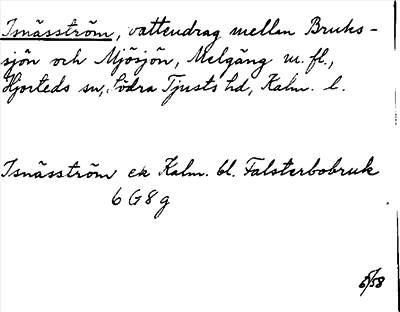 Isnäsström, vattendrag mellan Bruks-
sjön och Mjösjön, Melgäng m. fl.,
Hjorteds sn, Södra Tjusts hd, Kalm. l.
Isnäsström ek Kalm. bl. Falsterbobruk
6 G 8 g
5/58